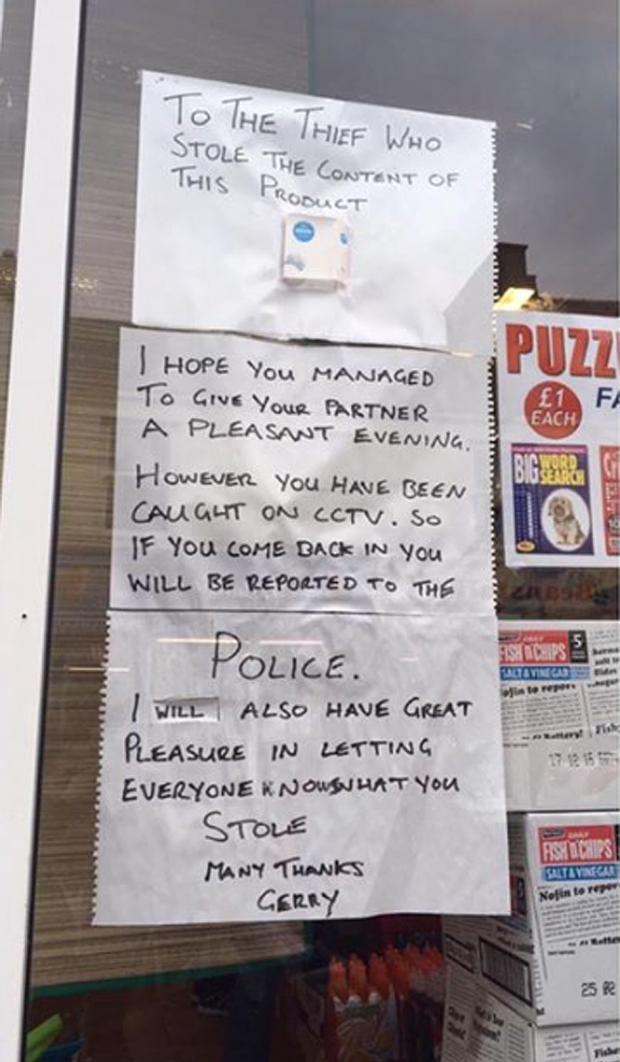 TO THE THIEF WHO
STOLE THE CONTENT OF
THIS PRODUCT
I HOPE YOU MANAGED
TO GIVE YOUR PARTNER
A PLEASANT EVENING.
HOWEVER YOU HAVE BEEN
CAUGHT ON CCTV. SO
IF YOU COME BACK IN YOU
WILL BE REPORTED TO THE
POLICE.
I WILL ALSO HAVE GREAT
PLEASURE IN LETTING
EVERYONE KNOW WHAT YOU
STOLE
MANY THANKS
GERRY
PUZZ
£1
EACH
FA
BIG WORD
SEARCH
FISH 'N' CHIPS
5
SALT & VINEGAR
FISH 'N' CHIPS
SALT & VINEGAR
Nofin to repor